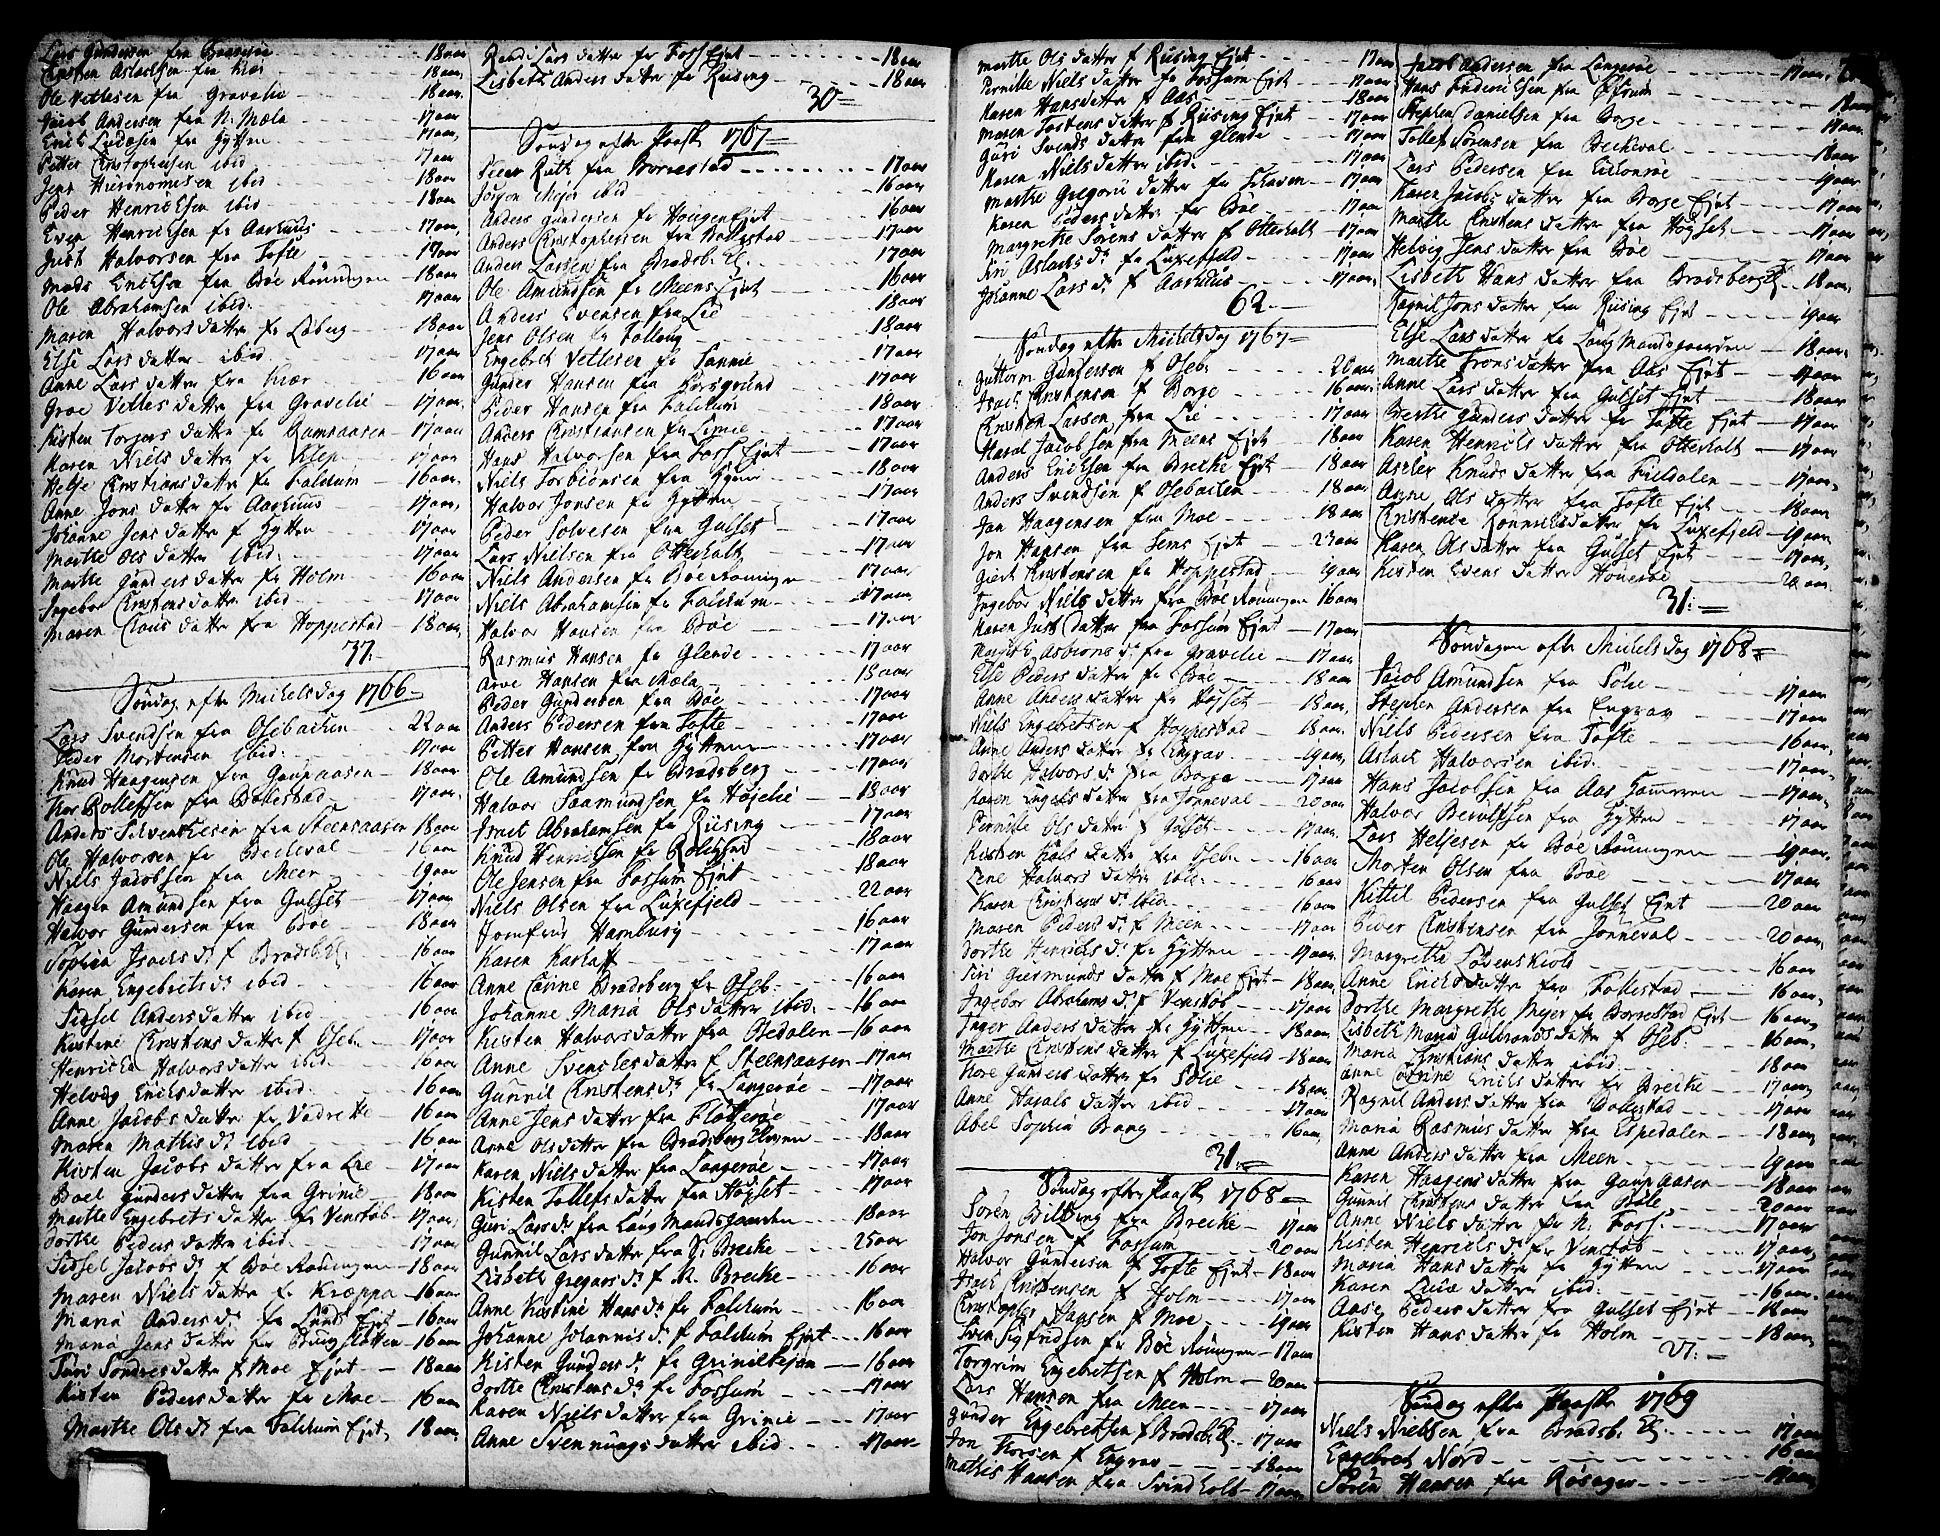 Lars Gundersen fra Baaserøe - 18 aar
Christen Aslacksen fra Kiær - 18 aar,
Ole Vetlesen fra Gravelie - 18 aar.
Jacob Andersen fra N. Mæla - 17 aar
Erich Lucasen fra Hytten - 17 aar,
Petter Christophersen ibid - 17 aar
Jens Hieronomisen ibid - 18 aar
Peder Henrichsen ibid. - 18 aar
Even Henrichsen fr Aarhuus - 17 aar,
Just Halvorsen fra Tofte - 17 aar
Mads Erichsen fra Bøe Rønningen - 18 aar
Ole Abrahamsen ibid. - 17 aar
Maren Halvors datter fr Liberg - 18 aar
Else Lars datter ibid - 17 aar
Anne Lars datter fra Kiær - 16 aar
Groe Vetles datter fra Gravelie - 17 aar.
Kisten Torgers datter fr Ramsaasen - 17 aar
Karen Niels datter fr Klep - 17 aar
Helje Christians datter fr Falchum - 16 aar.
Anne Jons datter fr Aarhuus - 17 aar,
Johanne Jens datter f Hytten - 17 aar
Marthe Ols datter ibid. - 17 aar
Marthe Gunders datter fr Holm - 16 aar
Ingebor Christens datter ibid - 17 aar
Maren Claus datter fra Hoppestad - 18 aar,
37.
Søndag efter Michelsdag 1766
Lars Svendsen fra Osebachen - 22 aar
Peder Mortensen ibid. - 17 aar
Knud Haagensen fra Gaupaasen - 18 aar
Thor Rollefsen fra Bollestad - 17 aar,
Anders Silvesthesen fra Steensaasen 18 aar
Ole Halvorsen fr Becheval - 16 aar
Niels Jacobsen fra Meen - 19 aar
Haagen Amundsen fra Gulset - 17 aar
Halvor Gundersen fra Bøe - 18 aar
Sophia Isachs dr f Bradsb. El. - 16 aar
Karen Engebrets dr ibid - 16 aar
Sidsel Anders datter ibid - 16 aar
Kirstine Christens datter f Oseb. - 17 aar
Henricha Halvors datter ibid. - 16 aar
Helvig Erichs datter ibid. - 16 aar
Anne Jacobs datter fr Vadrette - 16 aar
Maren Mathis dr ibid - 16 aar
Kisten Jacobs datter fra Lie - 17 aar
Boel Gunders datter fra Grinie - 18 aar
Marthe Engebrets datter fr Venstøb - 17 aar,
Dorthe Peders datter ibid - 17 aar
Sidsel Jacobs dr f Bøe Rønningen - 18 aar
Maren Niels datter fr Kræppa - 16 aar
Maria Anders dr fr Lunds Ejet - 16 aar
Maria Jens datter fr Brugsletten - 16 aar
Turi Sondres datter f Moe Ejet - 18 aar
Kisten Peders datter fr Moe - 16 aar
Marthe Ols dr fra Falchum Ejet, 18 aar.
Randi Lars datter fr Foss Ejet - 18 aar
Lisbeth Anders datter fr Riising - 18 aar
30
Søndag efter Paaske 1767
Peder Ruth fra Borrestad - 17 aar
Jørgen Mejer ibid - 16 aar
Anders Gundersen fr Haugen Ejet - 16 aar
Anders Christophersen fra Bollestad - 17 aar
Anders Larsen fra Bradsb. El. - 17 aar
Ole Amundsen fr Meens Ejet - 16 aar
Anders Evensen fra Lie - 18 aar
Jens Olsen fr Follaug - 18 aar
Engebret Vetlesen fr Sannie - 17 aar
Gunder Hansen fra Porsgrund - 17 aar
Peder Hansen fra Falchum - 18 aar
Anders Christiansen fr Lynie - 17 aar
Hans Halvorsen fra Foss Ejet - 17 aar
Niels Torbiønsen fra Hynie - 18 aar
Halvor Jonsen fr Hytten - 17 aar
Peder Solvesen fra Gulset - 17 aar
Lars Nielsen fra Otterholt - 17 aar
Niels Andersen fr Bøe Rønningen - 17 aar
Niels Abrahamsen fr Falchum - 17 aar
Halvor Hansen fra Bøe - 17 aar
Rasmus Hansen fr Glende - 17 aar
Arve Hansen fra Mæla - 18 aar
Peder Gundersen fra Bøe - 17 aar
Anders Pedersen fra Tofte - 17 aar
Petter Hansen fra Hytten - 17 aar
Ole Amundsen fr Bradsberg - 17 aar
Halvor Saamundsen fr Højelie - 18 aar
Israel Abrahamsen fr Riising - 17 aar
Knud Henrichsen fr Rolighed - 18 aar
Ole Jensen fra Fossum Ejet - 18 aar
Niels Olsen fra Luxefjeld - 22 aar
Jomfrue Hamburg - 16 aar
Karen Karlaff - 17 aar
Anne Cathrine Bradsberg fr Oseb. - 16 aar
Johanne Maria Ols datter ibid. - 16 aar
Kisten Halvors datter fra Osedalen - 16 aar
Anne Svenches datter f Steensaasen - 17 aar
Gunnil Christens dr fr Langerøe - 17 aar
Anne Jens datter fra Fløtterøe - 17 aar
Anne Ols datter fra Bradsberg Elven - 18 aar
Karen Niels datter fra Langerøe - 17 aar
Kisten Tollefs datter fra Høgset - 17 aar
Guri Lars dr fra Laug Mandsgaarden - 18 aar
Gunnil Lars datter fra N. Brecke - 25 aar
Lisbeth Gregers dr f N. Brecke - 16 aar
Anne Kistine Hans dr fr Falchum - 16 aar
Johanne Johannis dr f Falchum Ejet - 16 aar
Kisten Gunders dr fr Griniekjøn - 16 aar
Dorthe Christens dr fr Fossum - 17 aar
Karen Niels datter fra Grinie - 17 aar
Anne Svennungs datter ibid - 17 aar
Marthe Ols datter f Riising Ejet - 17 aar
Pernille Niels datter fr Fossum Ejet - 17 aar
Karen Hans datter f Aas - 18 aar
Maren Tostens datter f Riising Ejet - 17 aar
Guri Svends datter fra Glende - 17 aar
Karen Niels datter ibid. - 17 aar
Marthe Gregorii datter fr Skaven - 17 aar
Karen Peders datter fr Bøe - 17 aar
Margrethe Sørens datter f Otterholt - 17 aar
Siri Aslachs dr fr Luxefjeld - 17 aar
Johanne Lars dr f Aarhuus - 17 aar,
62.
Søndag efter Michelsdag 1767
Guttorm Gundersen f Oseb. - 20 aar
Isach Christensen f Borge - 16 aar
Christen Larsen fra Lie - 17 aar
Harol Jacobsen fra Meens Ejet - 18 aar
Anders Erichsen fra Brecke Ejet - 18 aar
Anders Svendsen f Osebachen - 18 aar
Jan Haagensen fra Moe - 18 aar
Jon Hansen fra Sems Ejet - 23 aar
Giert Christensen fr Hoppestad - 19 aar
Ingebor Niels datter fra Bøe Rønningen 16 aar
Karen Just datter fra Fossum Ejet - 17 aar
Margreth Asbiørns dr fra Gravelie - 17 aar
Else Peders datter fr Bøe - 18 aar
Anne Anders datter fr Høgset - 18 aar,
Niels Engebretsen f Hoppestad - 18 aar.
Anne Anders datter fr Engrav - 19 aar,
Dorthe Halvors dr fra Borge - 17 aar
Karen Engels datter fra Jønneval - 20 aar
Pernille Ols datter f Gulset - 17 aar.
Kisten Niels datter fra Oseb. - 16 aar
Lene Halvors datter ibid. - 16 aar
Karen Christens dr ibid - 16 aar
Maren Peders dr f Meen - 17 aar
Dorthe Henrichs dr fr Hytten - 19 aar,
Siri Giermunds datter f Moe Ejet - 18 aar,
Ingebor Abrahams dr f Venstøb - 17 aar
Inger Anders datter fr Hytten - 18 aar,
Marthe Christens datter f Luxefjeld - 18 aar,
Thore Gunders datter fr Sølie - 18 aar,
Anne Harals datter ibid - 17 aar
Abel Sophia Bang - 16 aar,
31.
Søndag efter Paaske 1768
Søren Bilbing fra Brecke - 17 aar
Jon Jonsen f Fossum - 20 aar
Halvor Gundersen f Tofte Ejet - 18 aar
Isach Christensen f Holm - 17 aar
Christopher Hansen f Moe - 19 aar
Sven Sigfridsen fr Bøe Rønningen - 17 aar
Torgrim Engebretsen f Holm - 20 aar
Lars Hansen fra Meen - 17 aar
Gunder Engebretsen f Bradsb. El. - 17 aar
Jon Thorsen f Engrav - 18 aar
Mathis Hansen fra Svindholt - 17 aar,
Jacob Andersen fra Langerøe - 17 aar.
Hans Friderichsen fra Østrum - 18 aar
Stephen Danielsen fra Borge - 17 aar.
Tollef Sørensen fra Becheval - 18 aar
Lars Pedersen fra Eichonrøe - 19 aar
Karen Jacobs datter fra Borge Ejet - 17 aar
Marthe Christens datter fra Høgset - 17 aar
Helvig Jens datter fra Bøe - 17 aar
Lisbeth Hans datter fra Bradsberg El. - 18 aar.
Ragnil Jons datter fra Riising Ejet - 19 aar
Else Lars datter fr Laug Mandsgaarden - 18 aar.
Marthe Trons datter fra Aas Ejet - 17 aar
Anne Lars datter fra Gulset Ejet - 18 aar
Berthe Gunders datter fr Tofte Ejet - 17 aar
Karen Henrichs datter fra Otterholt - 17 aar
Asler Knuds datter fra Fieldalen - 17 aar.
Anne Ols datter fra Tofte Ejet - 18 aar
Christense Rønnichs datter fr Luxefjeld - 19 aar
Karen Ols datter fra Gulset Ejet - 17 aar,
Kisten Evens datter Houerøe - 20 aar.
31.
Søndagen efter Michelsdag 1768
Jacob Amundsen fra Sølie - 17 aar
Stephen Andersen fra Engrav - 17 aar
Niels Pedersen fra Tofte - 16 aar,
Aslack Halvorsen ibid. - 17 aar,
Hans Jacobsen fra Aas Tømmeren - 17 aar,
Halvor Berulfsen fra Hytten - 17 aar
Lars Heljesen fr Bøe Rønningen - 19 aar,
Morten Olsen fra Bøe - 17 aar
Kittil Pedersen fra Gulset Ejet - 20 aar
Peder Christensen fra Jønneval - 20 aar,
Margrethe Løvenskiold - 16 aar
Anne Erichs datter fra Follestad - 16 aar,
Dorthe Margrethe Mejer fr Borrestad Ejet - 16 aar,
Lisbeth Maria Gulbrands datter f Oseb. - 16 aar,
Maria Christians datter ibid. - 18 aar
Anne Cathrine Erichs datter fr Brecke - 17 aar,
Ragnil Anders datter fra Bollestad - 17 aar
Maria Rasmus datter fra Espedalen - 18 aar,
Anne Anders datter fra Meen - 19 aar
Karen Haagens datter fra Gaupaasen - 18 aar
Gunnil Christens datter fra Bøle - 20 aar
Anne Niels datter fr N. Foss. - 17 aar
Kisten Henrichs dr fr Venstøb - 17 aar,
Maria Hans datter fr Hytten - 17 aar
Karen Lucæ datter ibid. - 16 aar.
Aase Peders datter fra Gulset Ejet - 18 aar
Kisten Hans datter fr Holm - 18 aar,
27.
Søndag efter Paaske 1769
Niels Nielsen fra Bradsb. El. - 17 aar
Engebret Nord - 16 aar
Søren Hansen fra Røsager - 17 aar